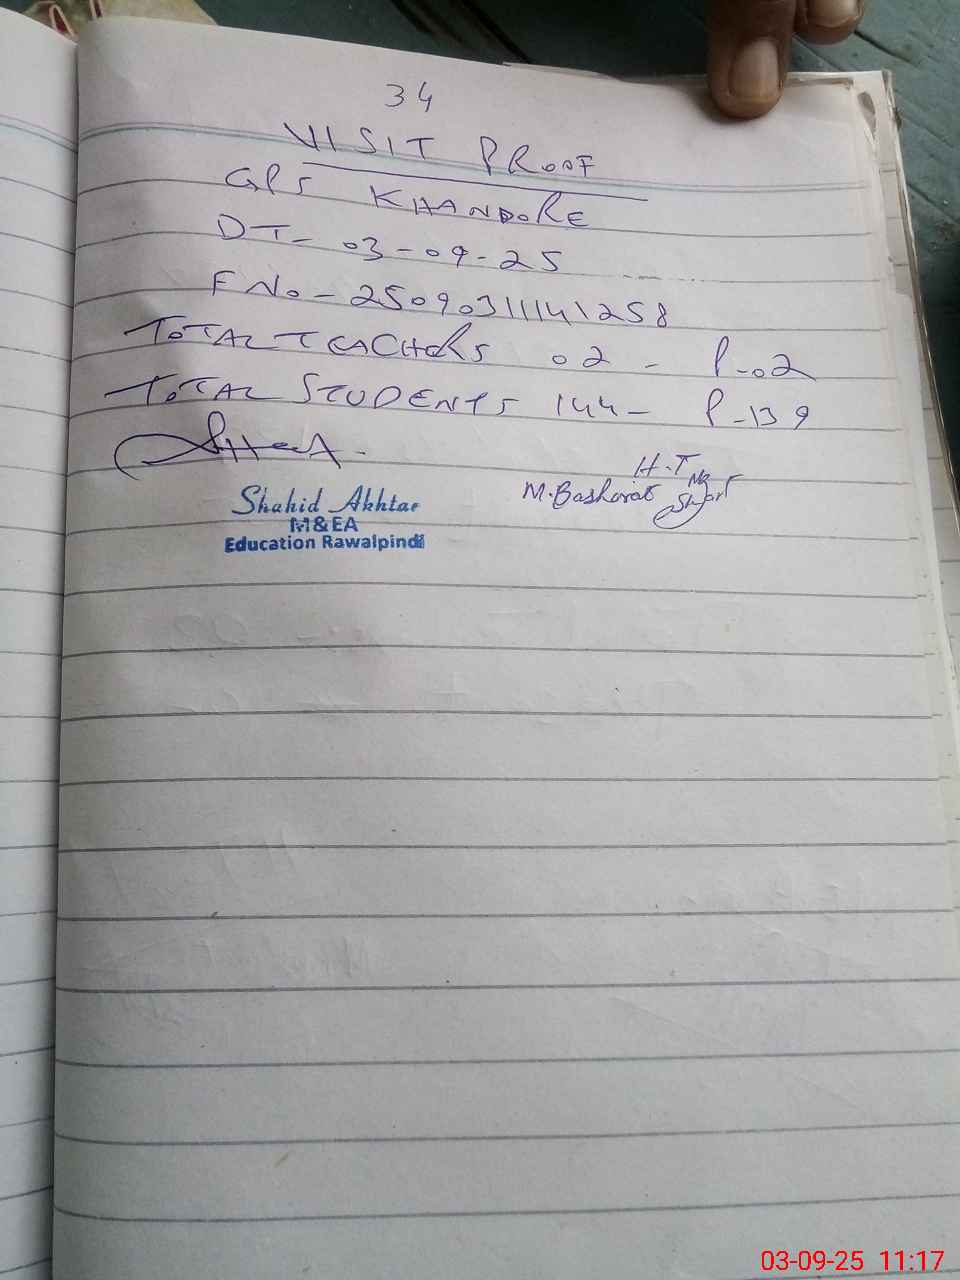 34
VISIT PROOF
GPS KHANDORE
DT- 03-09-25
F No - 25090311141258
TOTAL TEACHERS 02 - P-02
TOTAL STUDENTS 144- P-139
H.T
M.Basharat
Shahid Akhtar
M&EA
Education Rawalpindi
03-09-25 11:17